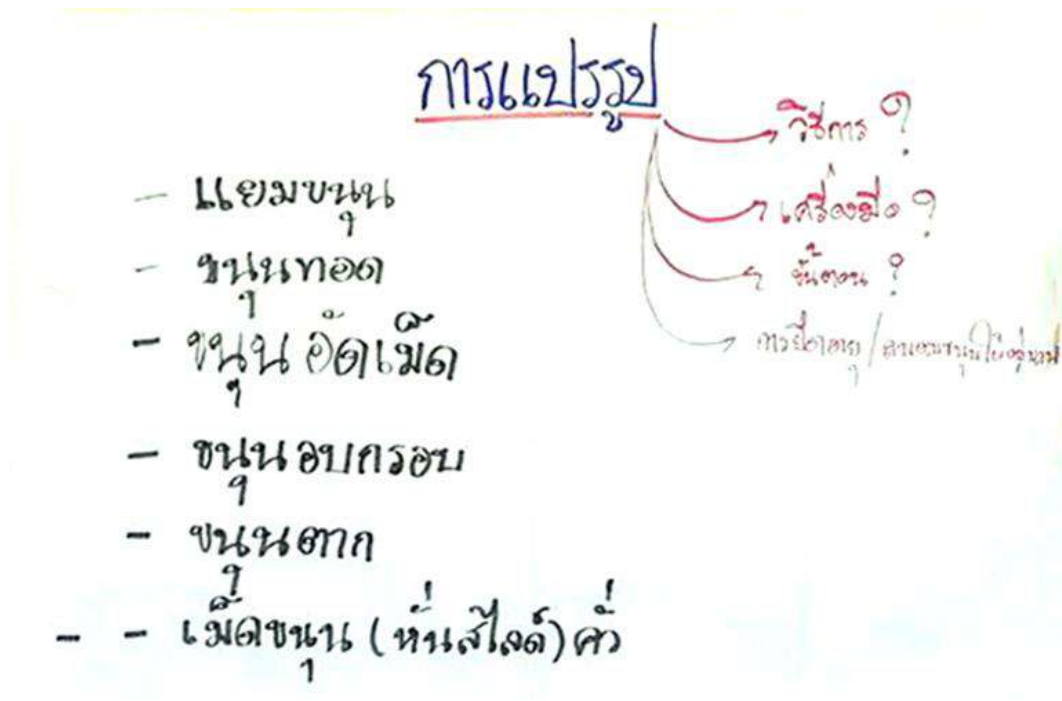 การแปรรูป
วิธีการ ?
เครื่องมือ ?
ขั้นตอน ?
การยืดอายุ / ถนอมขนุนให้อยู่นาน
- แยมขนุน
- ขนุนทอด
- ขนุนอัดเม็ด
- ขนุนอบกรอบ
- ขนุนตาก
- - เม็ดขนุน (หั่นสไลด์) คั่ว